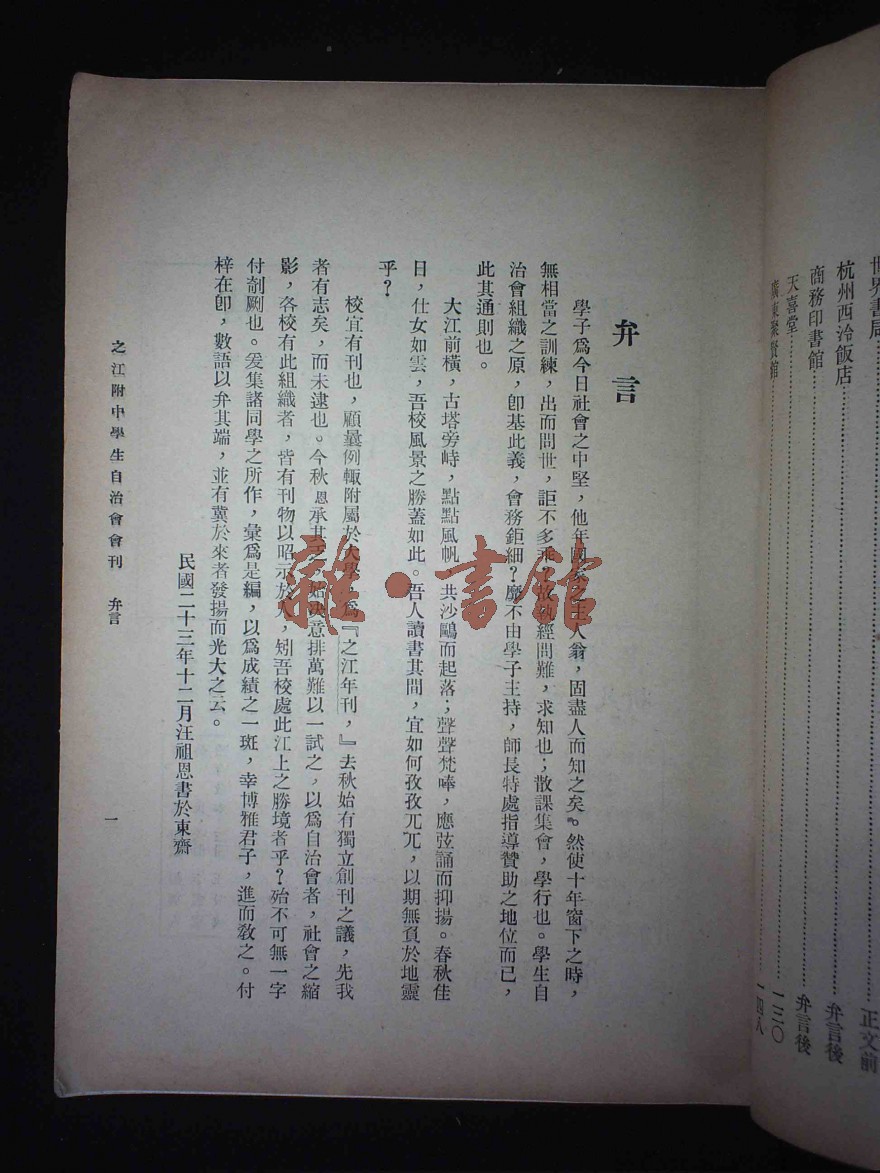 世界書局
杭州西泠飯店
商務印書館
天喜堂
廣東聚賢館
正文前
弁言後
弁言後
一三〇
一四八
弁言
學子爲今日社會之中堅，他年國家之主人翁，固盡人而知之矣。然使十年窗下之時，
無相當之訓練，出而問世，詎不多乖？故執經問難，求知也；散課集會，學行也。學生自
治會組織之原，卽基此義，會務鉅細？靡不由學子主持，師長特處指導贊助之地位而已，
此其通則也。
大江前橫，古塔旁峙，點點風帆，共沙鷗而起落；聲聲梵唪，應弦誦而抑揚。春秋佳
日，仕女如雲，吾校風景之勝蓋如此。吾人讀書其間，宜如何孜孜兀兀，以期無負於地靈
乎？
校宜有刊也，顧曩例輙附屬於大學，爲『之江年刊，』去秋始有獨立創刊之議，先我
者有志矣，而未逮也。今秋恩承其乏，始決意排萬難以一試之，以爲自治會者，社會之縮
影，各校有此組織者，皆有刊物以昭示於人，矧吾校處此江上之勝境者乎？殆不可無一字
付剞劂也。爰集諸同學之所作，彙爲是編，以爲成績之一斑，幸博雅君子，進而敎之。付
梓在卽，數語以弁其端，並有冀於來者發揚而光大之云。
民國二十三年十二月汪祖恩書於東齋
之江附中學生自治會會刊 弁言
一
雜·書館